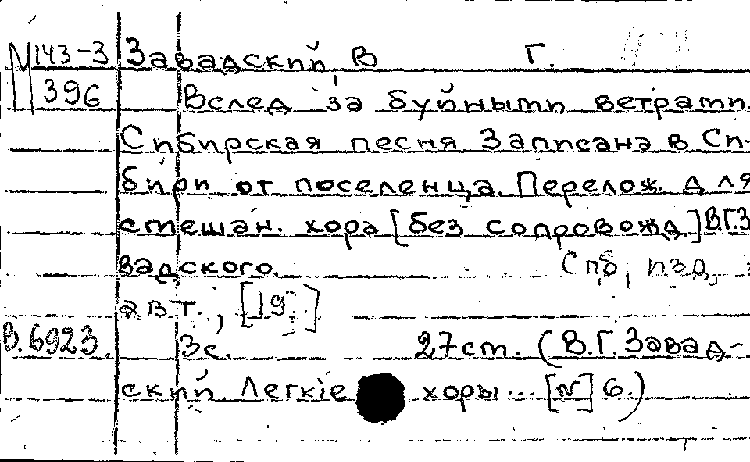 М143-3 Завадский, В Г.
396 Вслед за буйными ветрами.
Сибирская песня Записана в Си-
бири от поселенца. Перелож. для
смешан. хора [без сопровожд.] В.Г.З
вадского. Спб, изд,
авт., [19 ]
В.6923. 3с. 27см. (В.Г. Завад-
ский Легкіе хоры... [№] 6.)